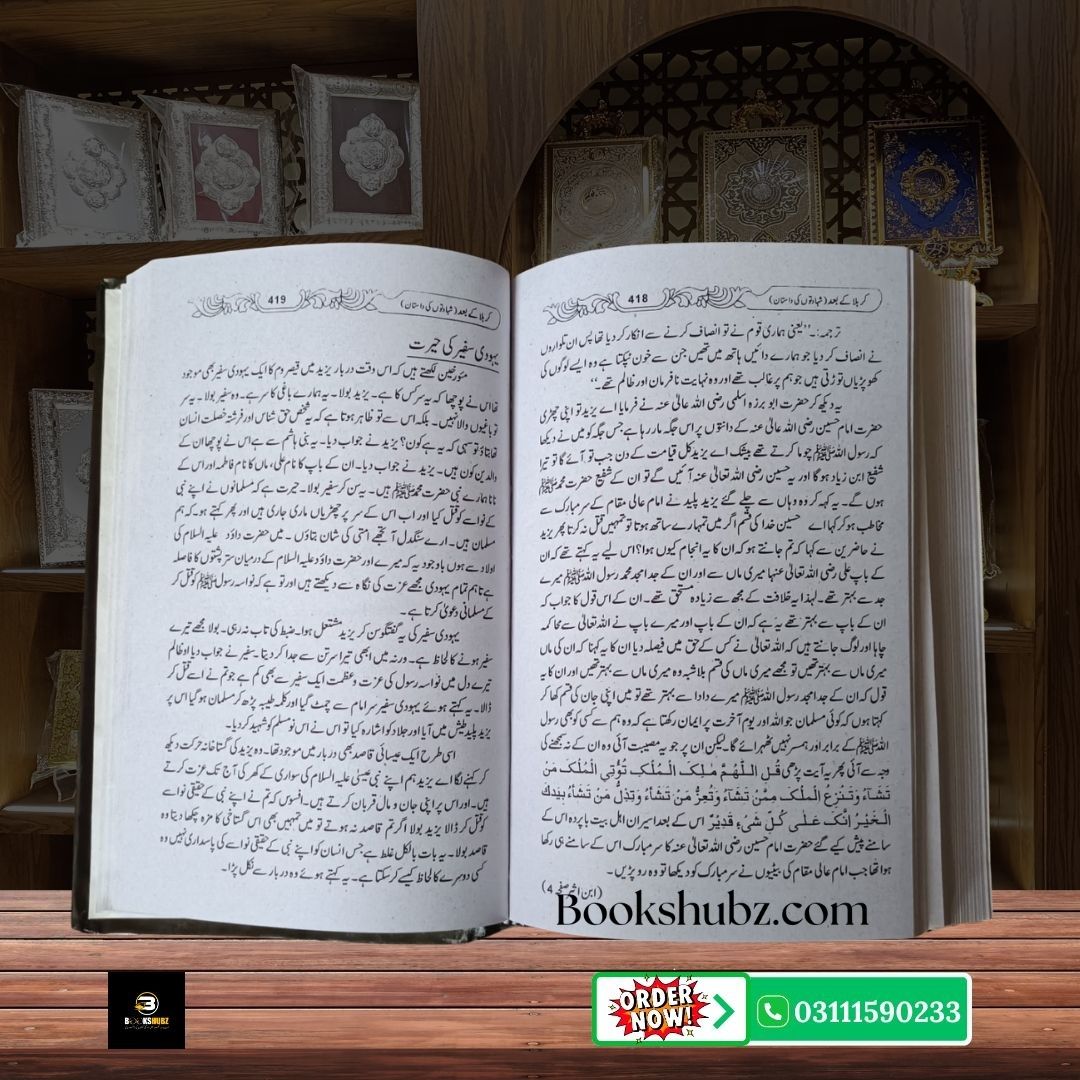 کربلا کے بعد (شہادتوں کی داستان)
418
ترجمہ:۔ ’’یعنی ہماری قوم نے تو انصاف کرنے سے انکار کر دیا تھا پس ان تلواروں
نے انصاف کر دیا جو ہمارے دائیں ہاتھ میں تھیں جن سے خون ٹپکتا ہے وہ ایسے لوگوں کی
کھوپڑیاں توڑتی ہیں جو ہم پر غالب تھے اور وہ نہایت نافرمان اور ظالم تھے۔‘‘
یہ دیکھ کر حضرت ابو برزہ اسلمی رضی اللہ عالیٰ عنہ نے فرمایا اے یزید تو اپنی چھڑی
حضرت امام حسین رضی اللہ عالیٰ عنہ کے دانتوں پر اس جگہ مار رہا ہے جس جگہ کو میں نے دیکھا
کہ رسول اللہ ﷺ چوما کرتے تھے بیشک اے یزید کل قیامت کے دن جب تو آئے گا تو تیرا
شفیع ابن زیاد ہوگا اور یہ حسین رضی اللہ تعالیٰ عنہ آئیں گے تو ان کے شفیع حضرت محمد ﷺ
ہوں گے۔ یہ کہہ کر وہ وہاں سے چلے گئے یزید پلید نے امام عالی مقام کے سر مبارک سے
مخاطب ہو کر کہا اے حسین خدا کی قسم اگر میں تمہارے ساتھ ہوتا تو تمہیں قتل نہ کرتا پھر یزید
نے حاضرین سے کہا کہ تم جانتے ہو کہ ان کا یہ انجام کیوں ہوا؟ اس لیے یہ کہتے تھے کہ ان
کے باپ علی رضی اللہ تعالیٰ عنہا میری ماں سے اور ان کے جد امجد محمد رسول اللہ ﷺ میرے
جد سے بہتر تھے۔ لہذا یہ خلافت کے مجھ سے زیادہ مستحق تھے۔ ان کے اس قول کا جواب کہ
ان کے باپ سے بہتر تھے یہ ہے کہ ان کے باپ اور میرے باپ نے اللہ تعالیٰ سے محاکمہ
چاہا اور لوگ جانتے ہیں کہ اللہ تعالیٰ نے کس کے حق میں فیصلہ دیا ان کا یہ کہنا کہ ان کی ماں
میری ماں سے بہتر تھیں تو مجھے میری ماں کی قسم بلاشبہ وہ میری ماں سے بہتر تھیں اور ان کا یہ
قول کہ ان کے جد امجد رسول اللہ ﷺ میرے دادا سے بہتر تھے تو میں اپنی جان کی قسم کھا کر
کہتا ہوں کہ کوئی مسلمان جو اللہ اور یوم آخرت پر ایمان رکھتا ہے کہ وہ ہم سے کسی کو بھی رسول
اللہ ﷺ کے برابر اور ہمسر نہیں ٹھہرائے گا۔ لیکن ان پر جو یہ مصیبت آئی وہ ان کے نہ سمجھنے کی
وجہ سے آئی پھر یہ آیت پڑھی قُلِ الـلّٰهُمَّ مٰلِکَ الْمُلْکِ تُؤْتِی الْمُلْکَ مَنْ
تَشَآءُ وَتَنْزِعُ الْمُلْکَ مِمَّنْ تَشَآءُ وَتُعِزُّ مَنْ تَشَآءُ وَتُذِلُّ مَنْ تَشَآءُ بِیَدِکَ
الْخَیْرُ اِنَّکَ عَلٰی کُلِّ شَیْءٍ قَدِیْرٌ اس کے بعد اسیران اہل بیت باپردہ اس کے
سامنے پیش کیے گئے حضرت امام حسین رضی اللہ تعالیٰ عنہ کا سر مبارک اس کے سامنے ہی رکھا
ہوا تھا جب امام عالی مقام کی بیٹیوں نے سر مبارک کو دیکھا تو وہ رو پڑیں۔
(ابن اثیر صفحہ 4)
کربلا کے بعد (شہادتوں کی داستان)
419
یہودی سفیر کی حیرت
مؤرخین لکھتے ہیں کہ اس وقت دربار یزید میں قیصر روم کا ایک یہودی سفیر بھی موجود
تھا اس نے پوچھا کہ یہ سر کس کا ہے۔ یزید بولا۔ یہ ہمارے باغی کا سر ہے۔ وہ سفیر بولا۔ یہ سر
تو باغیوں والا نہیں۔ بلکہ اس سے تو ظاہر ہوتا ہے کہ یہ شخص حق شناس اور فرشتہ خصلت انسان
تھا بتاؤ تو سہی کہ یہ ہے کون؟ یزید نے جواب دیا۔ یہ بنی ہاشم سے ہے اس نے پوچھا ان کے
والدین کون ہیں۔ یزید نے جواب دیا۔ ان کے باپ کا نام علی، ماں کا نام فاطمہ اور اس کے
نانا ہمارے نبی حضرت محمد ﷺ ہیں۔ یہ سن کر سفیر بولا۔ حیرت ہے کہ مسلمانوں نے اپنے نبی
کے نواسے کو قتل کیا اور اب اس کے سر پر چھڑیاں ماری جاری ہیں اور پھر کہتے ہو کہ ہم
مسلمان ہیں۔ ارے سنگدل آ تجھے امتی کی شان بتاؤں۔ میں حضرت داؤد علیہ السلام کی
اولاد سے ہوں باوجود یہ کہ میرے اور حضرت داؤد علیہ السلام کے درمیان ستر پشتوں کا فاصلہ
ہے تاہم تمام یہودی مجھے عزت کی نگاہ سے دیکھتے ہیں اور تو ہے کہ نواسہ رسول ﷺ کو قتل کر
کے مسلمانی دعویٰ کرتا ہے۔
یہودی سفیر کی یہ گفتگو سن کر یزید مشتعل ہوا۔ ضبط کی تاب نہ رہی۔ بولا مجھے تیرے
سفیر ہونے کا لحاظ ہے۔ ورنہ میں ابھی تیرا سر تن سے جدا کر دیتا۔ سفیر نے جواب دیا او ظالم
تیرے دل میں نواسہ رسول کی عزت و عظمت ایک سفیر سے بھی کم ہے جو تم نے اسے قتل کر
ڈالا۔ یہ کہتے ہوئے یہودی سفیر سر امام سے چمٹ گیا اور کلمہ طیبہ پڑھ کر مسلمان ہو گیا اس پر
یزید پلید طیش میں آیا اور جلاد کو اشارہ کیا تو اس نے اس نو مسلم کو شہید کر دیا۔
اسی طرح ایک عیسائی قاصد بھی دربار میں موجود تھا۔ وہ یزید کی گستاخانہ حرکت دیکھ
کر کہنے لگا اے یزید ہم اپنے نبی عیسیٰ علیہ السلام کی سواری کے کھر کی آج تک عزت کرتے
ہیں۔ اور اس پر اپنی جان و مال قربان کرتے ہیں۔ افسوس کہ تم نے اپنے نبی کے حقیقی نواسے
کو قتل کر ڈالا یزید بولا اگر تم قاصد نہ ہوتے تو میں تمہیں بھی اس گستاخی کا مزہ چکھا دیتا وہ
قاصد بولا۔ یہ بات بالکل غلط ہے جس انسان کو اپنے نبی کے حقیقی نواسے کی پاسداری نہیں وہ
کسی دوسرے کا لحاظ کیسے کر سکتا ہے۔ یہ کہتے ہوئے وہ دربار سے نکل پڑا۔
Bookshubz.com
BOOKSHUBZ
ORDER NOW!
03111590233